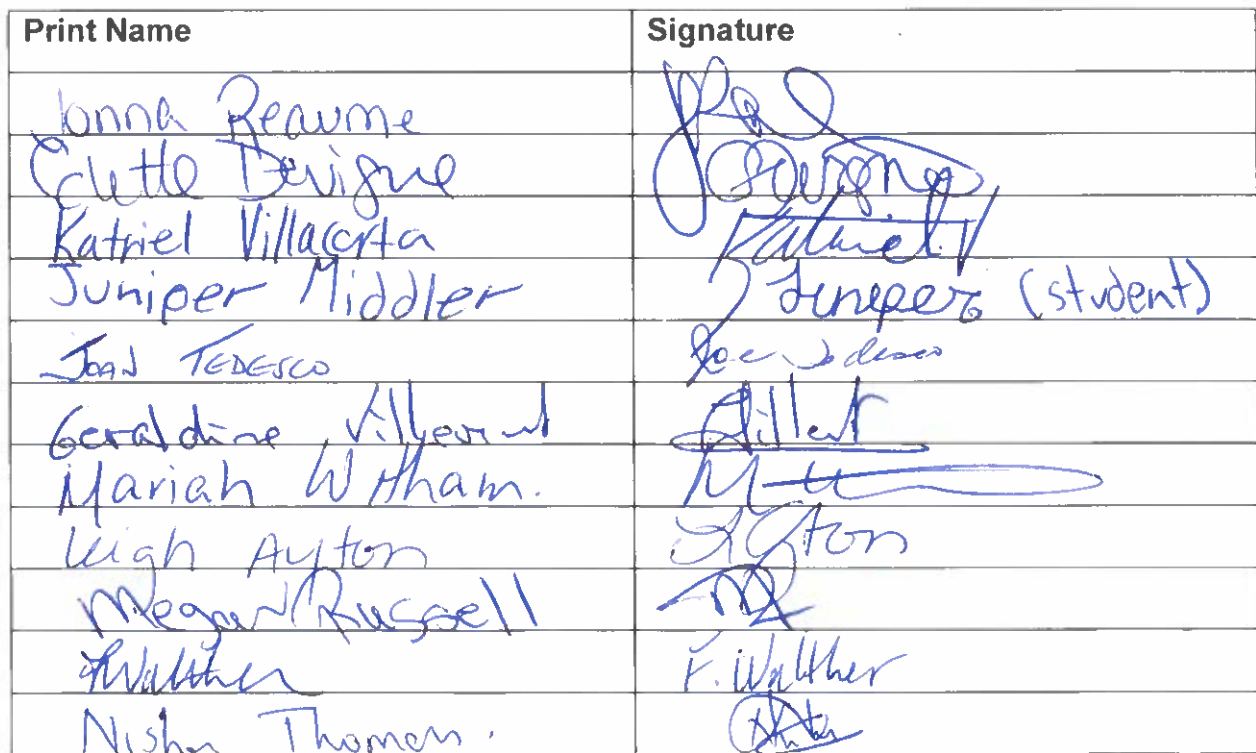 Print Name Signature
Jonna Reaume
Colette Devigne Devigne
Katriel Villacorta Katriel.V
Juniper Middler Juniper (student)
JOAN TEDESCO Tedesco
Geraldine
Mariah Witham.
Leigh Ayton LAyton
Megan Russell
F Walther F. Walther
Nisha Thoman.